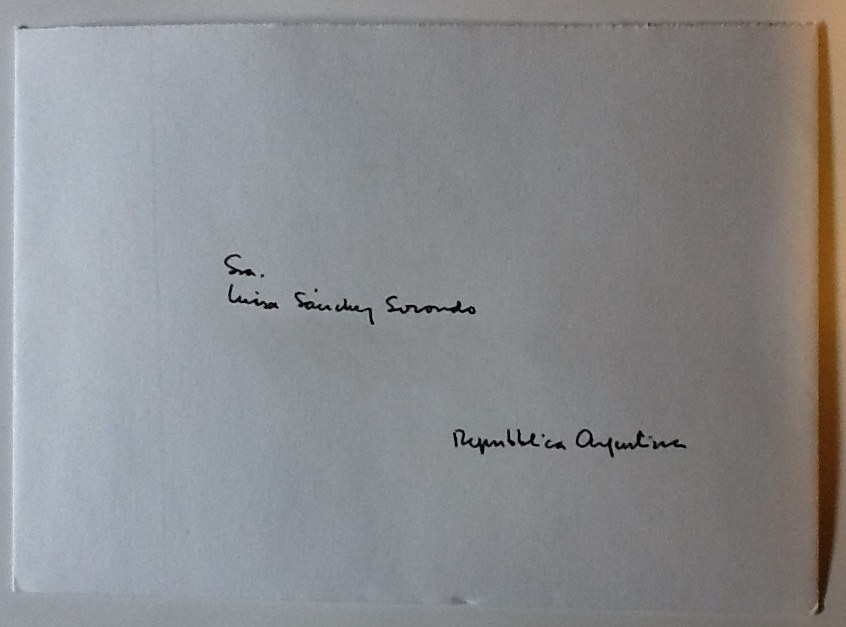 Sra.
Luisa Sánchez Sorondo
Repubblica Argentina